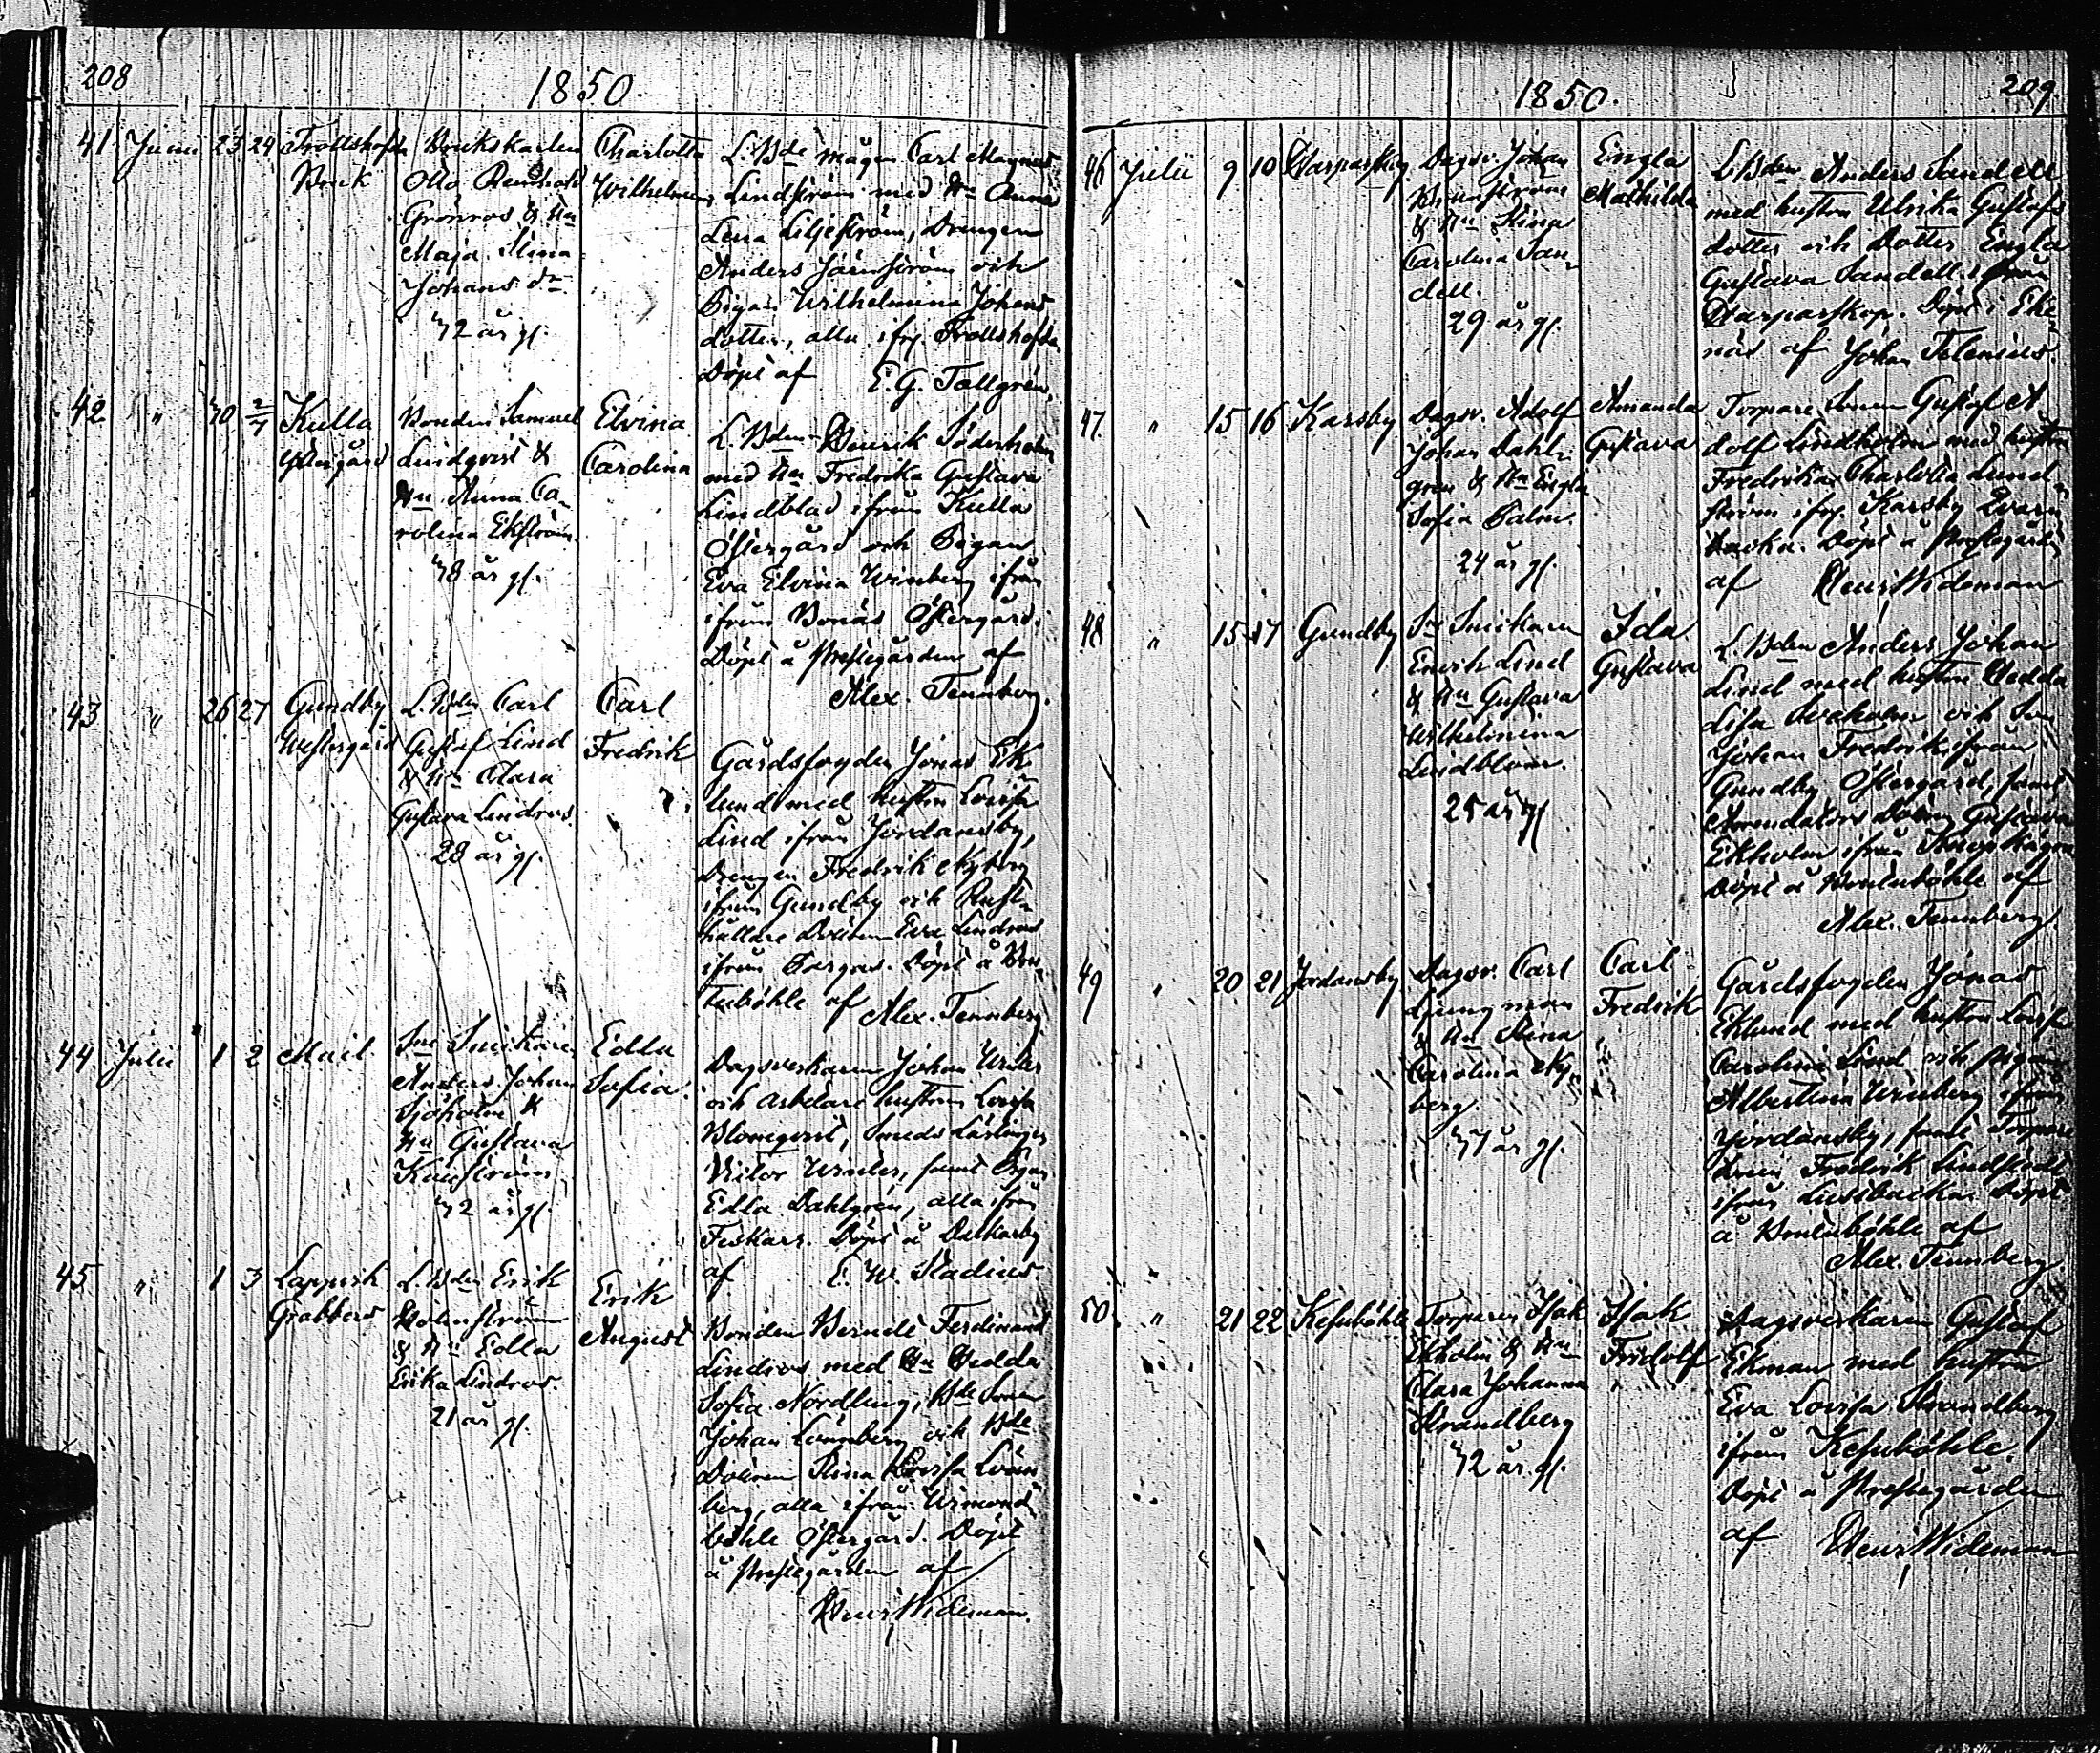 208
1850.
41 Junii 23 24 Trollshofda Bruk
Brukskarlen
Otto Reinhold
Grönroos & Hu
Maja Stina
Johans dr.
32 år gl.
Charlotta
Wilhelmina
L. Bde mågen Carl Magnus
Lindström med Hu Anna
Lena Liljeström, Drengen
Anders Järnström och
Pigan Wilhelmina Johans
dotter, alla ifrn Trollshofda
Döpt af E. G. Tallgren.
42 " 30 2/7 Kulla
Ytter gård
Bonden Samuel
Lindqvist &
Hu Anna Ca-
rolina Ekström.
38 år gl.
Elvina
Carolina
L. Bden Henrik Söderholm
med Hu Fredrika Gustava
Lindblad ifrån Kulla
Östergård och Pigan
Eva Elvina Winberg ifrån
ifrån Bonäs Östergård.
Döpt å Prestegården af
Alex. Tennberg.
43 " 26 27 Gundby
Westergård
L. Bden Carl
Gustaf Lind
& Hu Clara
Gustava Lindroos.
28 år gl.
Carl
Fredrik
Gårdsfogden Jonas Ek-
lund med hustru Lovisa
Lind ifrån Jordansby,
Drengen Fredrik Nyberg
ifrån Gundby och Rust-
hållare Dottren Eva Lindroos
ifrån Döpt å
böhle af Alex. Tennberg.
44 Julii 1 2 Mail.
Sne Snickaren
Anders Johan
Sjöholm &
Hu Gustava
32 år gl.
Edla
Sofia.
Dagsverkaren Johan
och arbetare hustrun Lovisa
Blomqvist, Smeds Lärlingen
Victor samt Pigan
Edla Dahlgren, alla ifrån
Fiskars. Döpt å
af E. W. Stadius.
45 " 1 3 Lappvik
Grabbers
L. Bden Erik
Holmström
& Hu Edla
Erika Lindroos.
21 år gl.
Erik
August
Bonden Berndt Ferdinand
Lindroos med Hu Hedda
Sofia Nordling, Bde Sonen
Johan Lönnberg och Bde
Dottren Stina Lovisa Lönn-
berg, alla ifrån
böhle Östergård. Döpt
å Prestegården af
Henr. Wideman.
1850.
209
46 Julii 9 10
Dagsv. Johan
& Hu Stina
Carolina San-
dell.
29 år gl.
Engla
Mathilda
L. Bden Anders Sandell
med hustru Ulrika Gustafs
dotter och Dotter Engla
Gustava Sandell ifrån
Döpt i Eke-
näs af Johan
47 " 15 16 Karsby
Dagsv. Adolf
Johan Dahl-
gren & Hu Engla
Sofia Palm.
24 år gl.
Amanda
Gustava
Torpare Sonen Gustaf A-
dolf Lindholm med hustru
Fredrika Charlotta Lind-
ström ifrn Karsby Qvarn
backa. Döpt å Prestegården
af Henr. Wideman
48 " 15 17 Gundby
Sne Snickaren
Enrik Lind
& Hu Gustava
Wilhelmina
Lindblom.
25 år gl
Ida
Gustava
L. Bden Anders Johan
Lind med hustru Hedda
Lisa och Son
Johan Fredrik ifrån
Gundby Östergård, samt
Arrendators Dottren Gustava
Ekholm ifrån
Döpt å af
Alex. Tennberg.
49 " 20 21 Jordansby
Dagsv. Carl
Ljungman
& Hu Stina
Carolina Ny-
berg.
37 år gl.
Carl
Fredrik
Gårdsfogden Jonas
Eklund med hustru Lovisa
Carolina Lind, och pigan
Albertina Winberg ifrån
Jordansby, samt Torpare
Sonen Fredrik Lindstedt
ifrån Döpt
å af
Alex. Tennberg
50 " 21 22
Torparen Isak
Ekholm & Hu
Clara Johanna
Strandberg
32 år gl.
Isak
Fridolf
Dagsverkaren Gustaf
Ekman med hustru
Eva Lovisa Strandberg
ifrån
Döpt å Prestegården
af Henr. Wideman